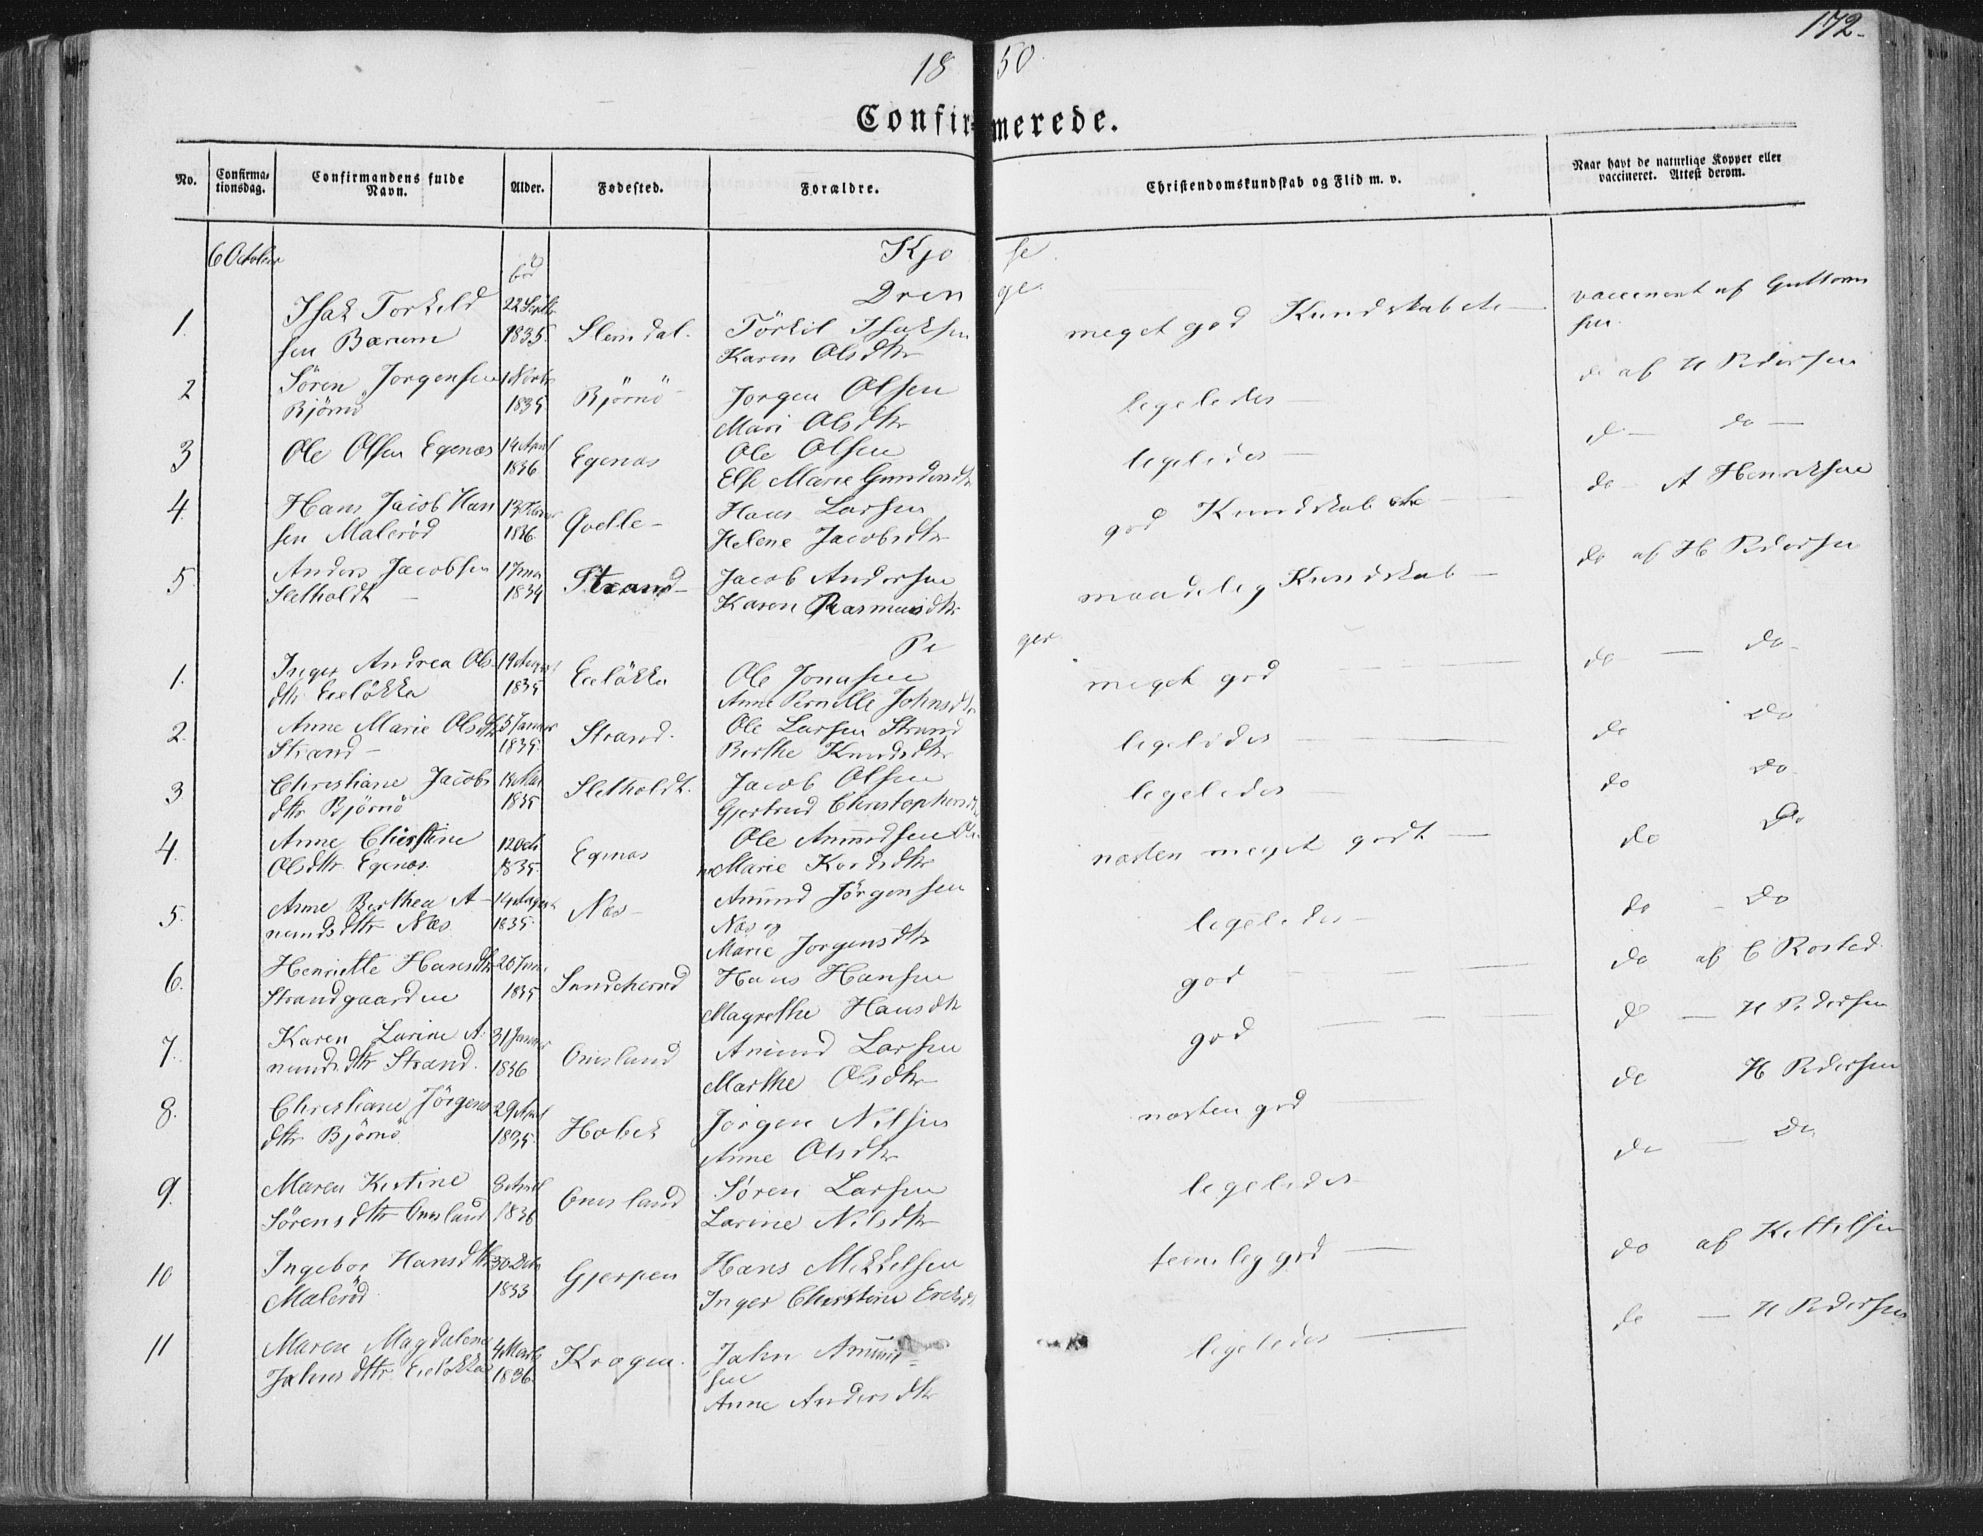 172.
1850
Confirmerede.
No.
Confirmationsdag.
Confirmandens fulde Navn.
Alder.
Fødested.
Forældre.
Christendomskundskab og Flid m. v.
Naar havt de naturlige Kopper eller vaccineret. Attest derom.
6 October
Kjose
Drenge
1. Isak Torkild
sen Bærum
22 Septbr
1835.
Slemdal.
Törkil Isaksen
Karen Olsdtr
meget god Kundskab etc
vaccineret af Guttorm
sen.
2 Søren Jorgensen
Bjørnø
1835
Bjørnö
Jorgen Olsen
Mari Olsdtr
ligeledes
do af H Pedersen
3 Ole Olsen Egenæs
14 April
1836
Egenæs
Ole Olsen
Else Marie
ligeledes
do do
4. Hans Jacob Han
sen Malerød
1836
Qvelle
Hans Larsen
Helene Jacobsdtr
god Kundskab etc
do A Henriksen
5. Anders Jacobsen
Sletholdt
1834
Strand
Jacob Andersen
Karen Rasmusdtr
maadelig Kundskab
do af H Pedersen
Piger
1. Inger Andrea Ols
dtr Eeløkka
19 August
1835
Eeløkka
Ole Jonasen
Anne Pernille Johnsdtr
meget god
do do
2. Anne Marie Olsdtr
Strand
5 Januar
1835.
Strand.
Ole Larsen Strand
Berthe Knudsdtr
ligeledes
do do
3 Christiane Jacobs
dtr Bjørnø
1835
Sletholdt.
Jacob Olsen
Gjertrud Christophersdtr
ligeledes
do do
4. Anne Christine
Olsdttr. Egenæs.
12 Oct
1835.
Egenæs
Ole Amundsen
Marie
næsten meget godt
do do
5. Anne Berthea A
mundsdtr Næs
14 August
1835.
Næs
Amund Jörgensen
Næs og
Marie Jorgensdtr
ligeledes
do do
6. Henriette Hansdtr
Strandgaarden
1835
Hans Hansen
Magrethe Hansdtr
god
do af C Rosted.
7. Karen Larine A.
mundsdtr Strand.
31 Januar
1836
Omsland
Amund Larsen
Marthe Olsdtr
god
do H Pedersen
8. Christiane Jörgens
dtr Bjørnø
29 April
1835.
Holbek
Jörgen Nilsen
Anne Olsdtr
næsten god
do H Pedersen
9. Maren Kistine
Sørensdtr Omsland
8 April
1836
Omsland
Søren Larsen
Larine Nilsdtr
ligeledes
do do
10 Ingebor Hansdtr
Malerød.
1833
Gjerpen
Hans Mikkelsen
Inger Christine
temelig god
do af Kittilsen
11 Maren Magdalene
Johnsdtr Eeløkka
4 Marts
1836.
Kragerø.
John Amund
sen
Anne Andersdtr
ligeledes
do H Pedersen